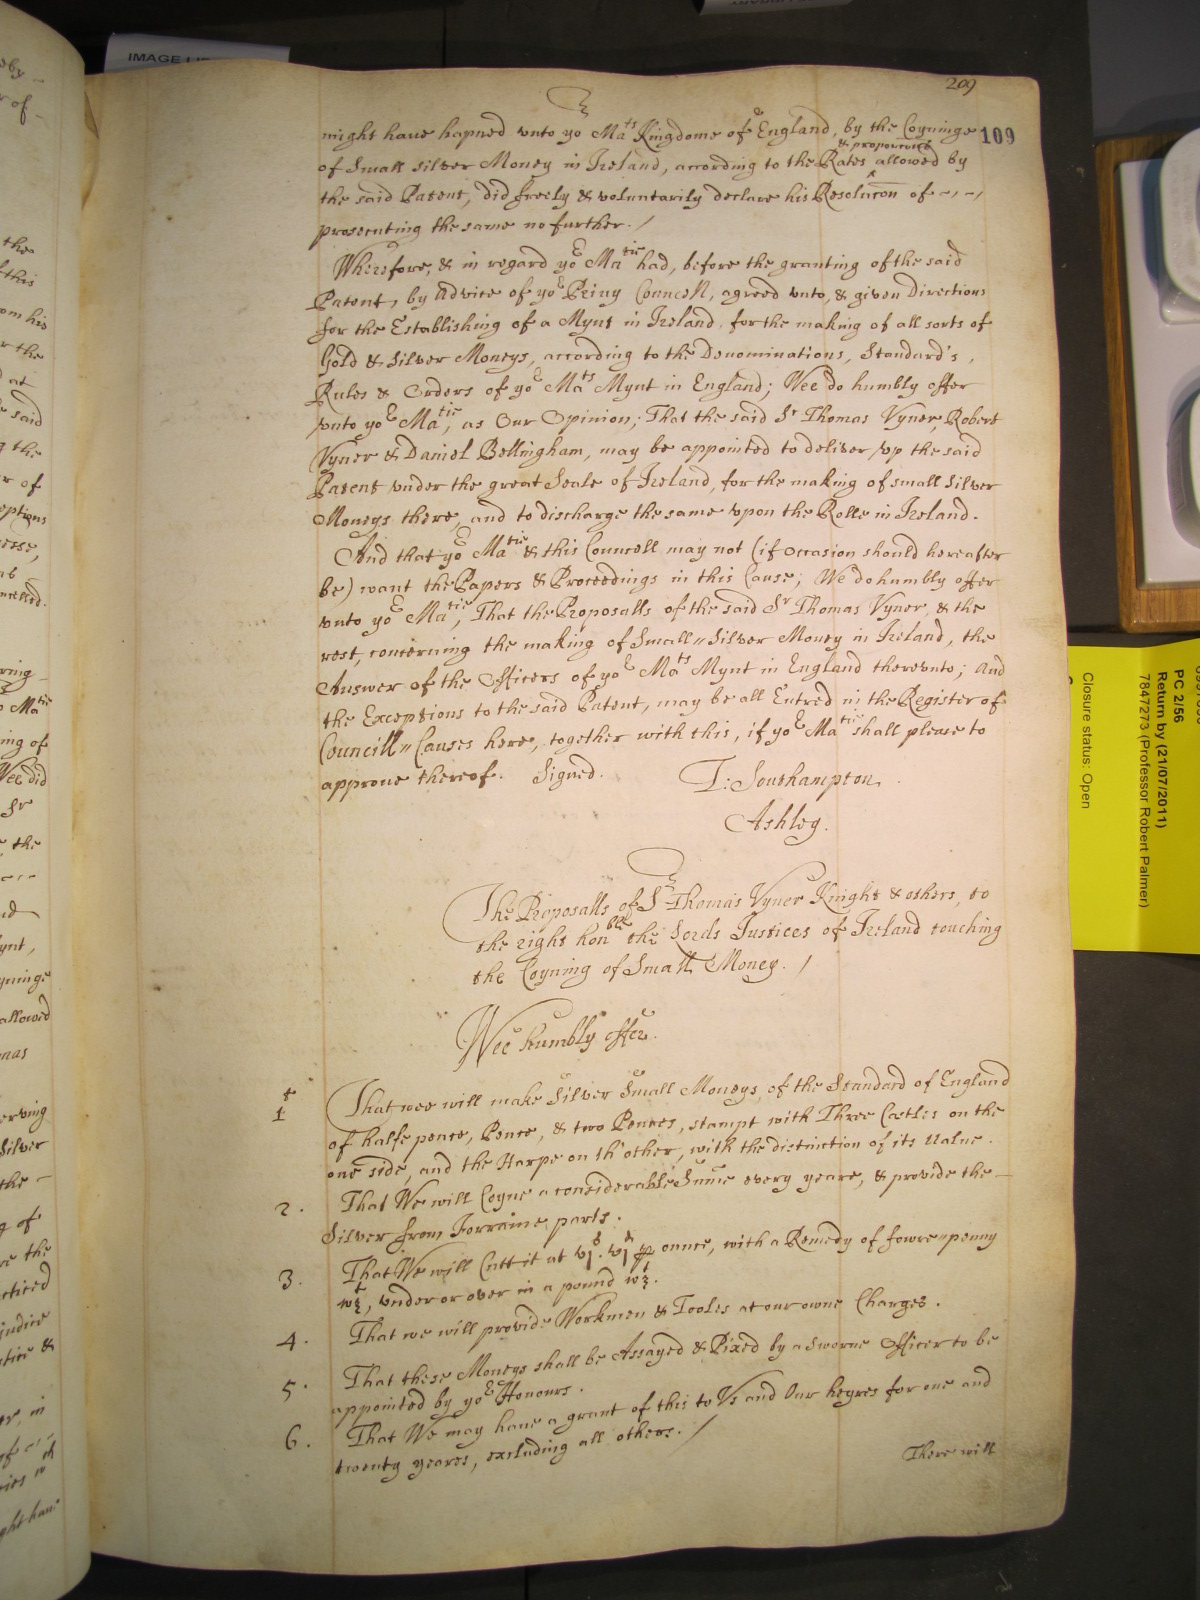 IMAGE LI
209
109
might have hapned vnto yoᵉ Maᵗˢ Kingdome of England, by the Coyninge
of Small silver Money in Ireland, according to the Rates & proporcions allowed by
the said Patent, did freely & voluntarily declare his Resolucon of - - -
prosecuting the same no further. /
Wherefore, & in regard yoᵉ Maᵗⁱᵉ had, before the granting of the said
Patent, by Advice of yoᵉ Privy Councell, agreed vnto, & given Directions
for the Establishing of a Mynt in Ireland, for the making of all sorts of
Gold & Silver Moneys, according to the Denominations, Standard's,
Rules & Orders of yoᵉ Maᵗˢ Mynt in England; Wee do humbly offer
vnto yoᵉ Maᵗⁱᵉ, as Our Opinion; That the said Sʳ Thomas Vyner, Robert
Vyner & Daniel Bellingham, may be appointed to deliver vp the said
Patent vnder the great Seale of Ireland, for the making of small Silver
Moneys there, and to discharge the same vpon the Rolle in Ireland.
And that yoᵉ Maᵗⁱᵉ & this Councell may not (if occasion should hereafter
be) want the Papers & Proceedings in this Cause; We do humbly offer
vnto yoᵉ Maᵗⁱᵉ, That the Proposalls of the said Sʳ Thomas Vyner, & the
rest, concerning the making of Small=Silver Money in Ireland, the
Answer of the Officers of yoᵉ Maᵗˢ Mynt in England therevnto; And
the Exceptions to the said Patent, may be all Entred in the Register of
Councill=Causes here, together with this, if yoᵉ Maᵗⁱᵉ shall please to
approue thereof. Signed. T: Southampton.
Ashley.
The Proposalls of Sʳ Thomas Vyner Knight & others, to
the right honᵇˡᵉ the Lords Justices of Ireland touching
the Coyning of Small Money. /
Wee humbly offer.
1 That wee will make Silver Small Moneys, of the Standard of England
of halfe pence, Pence, & two Pences, stampt with Three Castles on the
one side, and the Harpe on th'other, with the distinction of its value.
2. That We will Coyne a considerable Summe every yeare, & provide the -
Silver from Forraine parts.
3. That We will Cutt it at vjˢ. vjᵈ ꝑ ounce, with a Remedy of fowre=penny
wᵗ, vnder or over in a pound wᵗ.
4. That we will provide Workmen & Tooles at our owne Charges.
5. That these Moneys shall be Assayed & Pixed by a Sworne Officer to be
appointed by yoᵉ Honours.
6. That We may haue a grant of this to Vs and Our heyres for one and
twenty yeares, excluding all others. /
There will
PC 2/56
Return by (21/07/2011)
7847273 (Professor Robert Palmer)
Closure status: Open